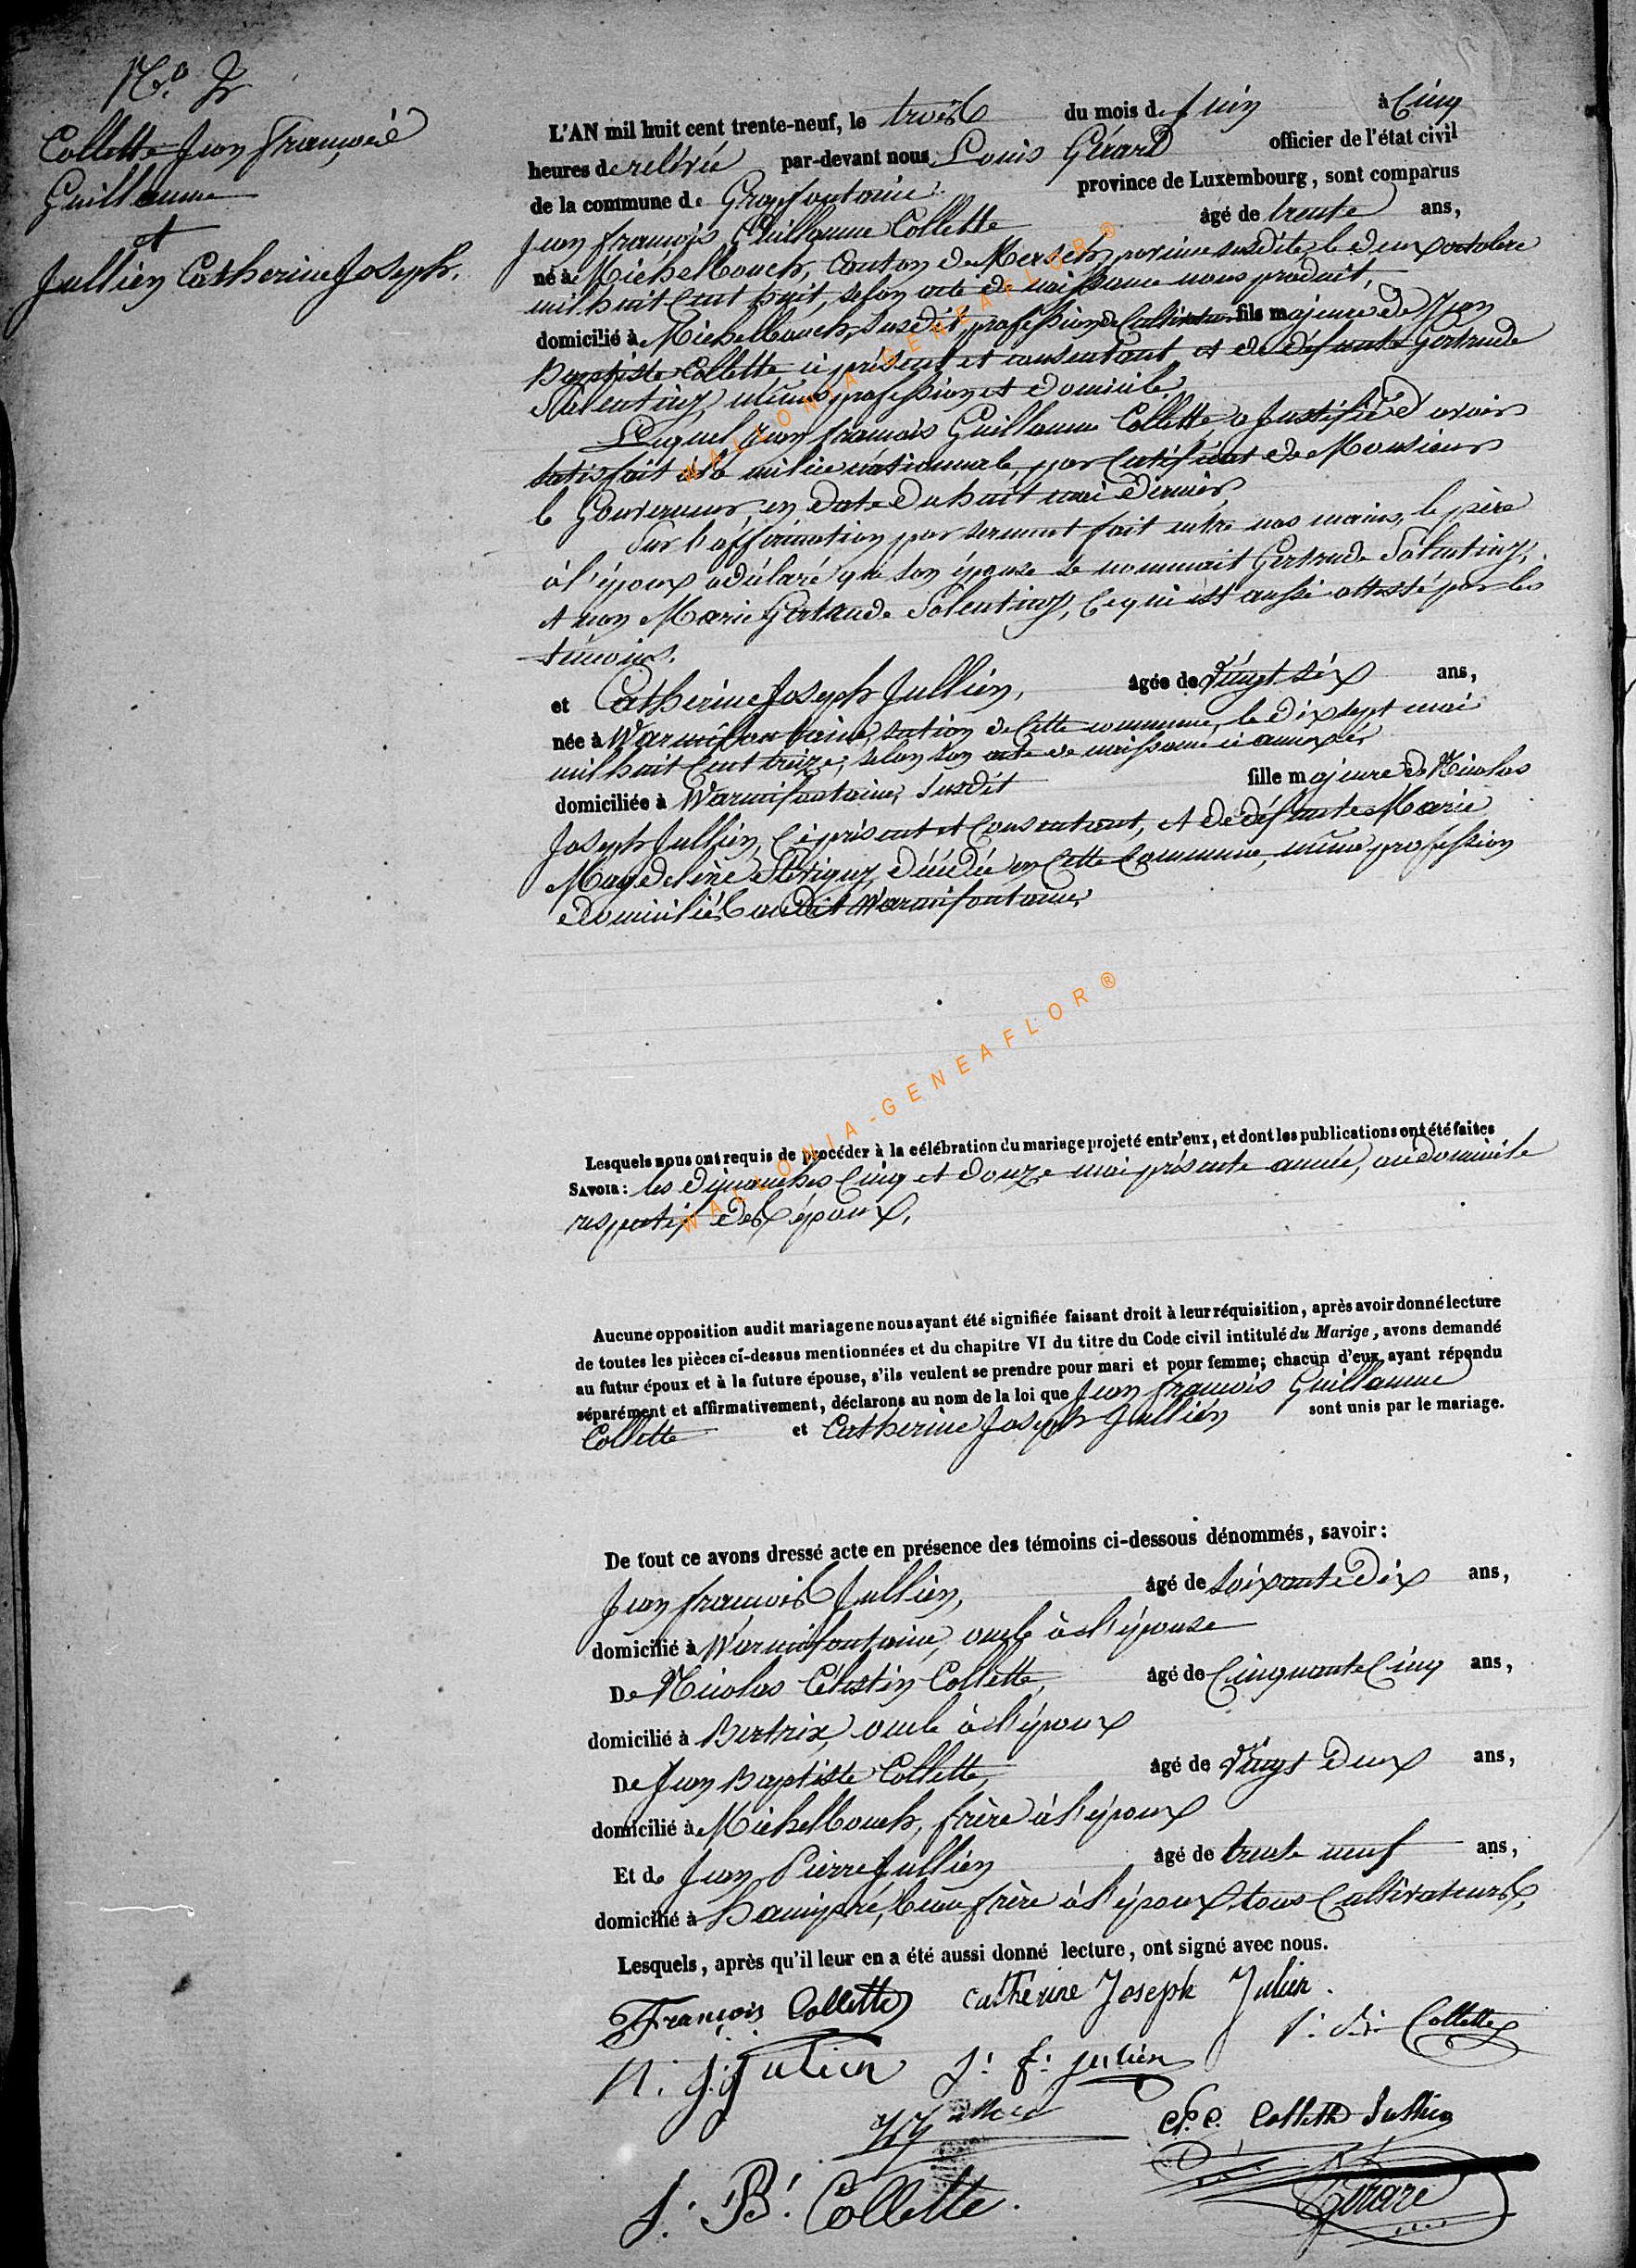 N.°
Collette Jean François
Guillaume
et
Jullien Catherine Joseph.
L'AN mil huit cent trente-neuf, le trois du mois de juin à Cinq
heures de relevée par-devant nous Louis Gérard officier de l'état civil
de la commune de Grapfontaine province de Luxembourg, sont comparus
Jean françois Guillaume Collette âgé de trente ans,
né à Michelbouch, Canton de Mersch, province susdite, le deux octobre
mil huit Cent huit, selon acte de naissance nous produit,
domicilié à Michelbouch, susdit, profession de Cultivateur fils majeure de Jean
Baptiste Collette ci présent et consentant, et de défunte Gertrude
Salentiny, même profession et domicile.
Lequel Jean françois Guillaume Collette a Justifié d'avoir
satisfait à la milice nationnale, par Certificat de Monsieur
le Gouverneur, en date du huit mai dernier,
Sur l'affirmation par serment fait entre nos mains, le père
à l'époux a déclaré que son épouse se nommait Gertrude Salentiny,
et non Marie Gertrude Salentiny, Ce qui est aussi attesté par les
témoins.
et Catherine Joseph Jullien, âgée de Vingt six ans,
née à Warmifontaine, section de Cette commune, le dix sept mai
mil huit Cent treize, selon son acte de naissance ci annexée,
domiciliée à Warmifontaine, susdit fille majeure de Nicolas
Joseph Jullien, Ci présent et Consentant, et de défunte Marie
Magdeleine décédée en Cette Commune, même profession
domiciliés audit Warmifontaine,
Lesquels nous ont requis de procéder à la célébration du mariage projeté entr'eux, et dont les publications ont été faites
SAVOIR: les dimanches Cinq et douze mai présente année, au domicile
respectif des époux.
Aucune opposition audit mariage ne nous ayant été signifiée faisant droit à leur réquisition, après avoir donné lecture
de toutes les pièces ci-dessus mentionnées et du chapitre VI du titre du Code civil intitulé du Marige, avons demandé
au futur époux et à la future épouse, s'ils veulent se prendre pour mari et pour femme; chacun d'eux ayant répondu
séparément et affirmativement, déclarons au nom de la loi que Jean françois Guillaume
Collette et Catherine Joseph Jullien sont unis par le mariage.
De tout ce avons dressé acte en présence des témoins ci-dessous dénommés, savoir:
Jean françois Jullien, âgé de soixante dix ans,
domicilié à Warmifontaine, oncle à l'épouse
De Nicolas Célestin Collette, âgé de Cinquante Cinq ans,
domicilié à Bertrix, oncle à l'époux
De Jean Baptiste Collette, âgé de Vingt deux ans,
domicilié à Michelbouch, frère à l'époux
Et de Jean Pierre Jullien âgé de trente neuf ans,
domicilié à hamipré, beau frère à l'époux, tous Cultivateurs,
Lesquels, après qu'il leur en a été aussi donné lecture, ont signé avec nous.
François Collette Catherine Joseph Julien.
Collette
n. j. julien j: f: julien
Collette Jullien
J: B: Collette. Gerard
WALLONIA-GENEAFLOR®
WALLONIA-GENEAFLOR®